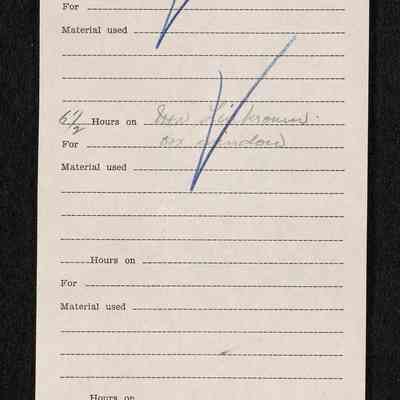 For
Material used
Hours on
For window
Material used
Hours on
For
Material used
Hours on